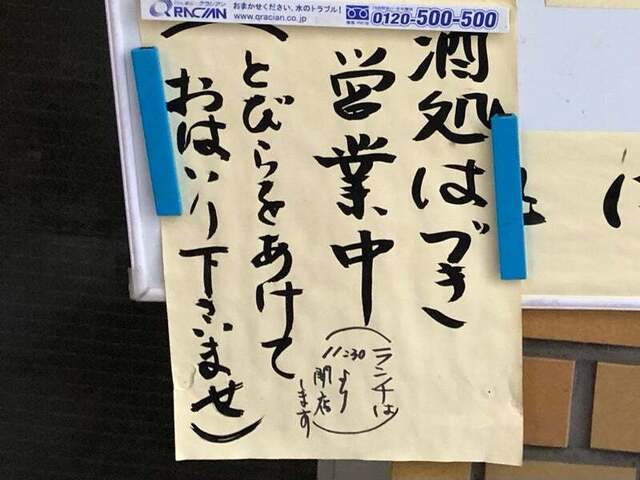 QRACIAN
おまかせください、水のトラブル!
www.qracian.co.jp
0120-500-500
酒処はづき
営業中
(ランチは
11:30より
開店
します)
(とびらをあけて
おはいり下さいませ)